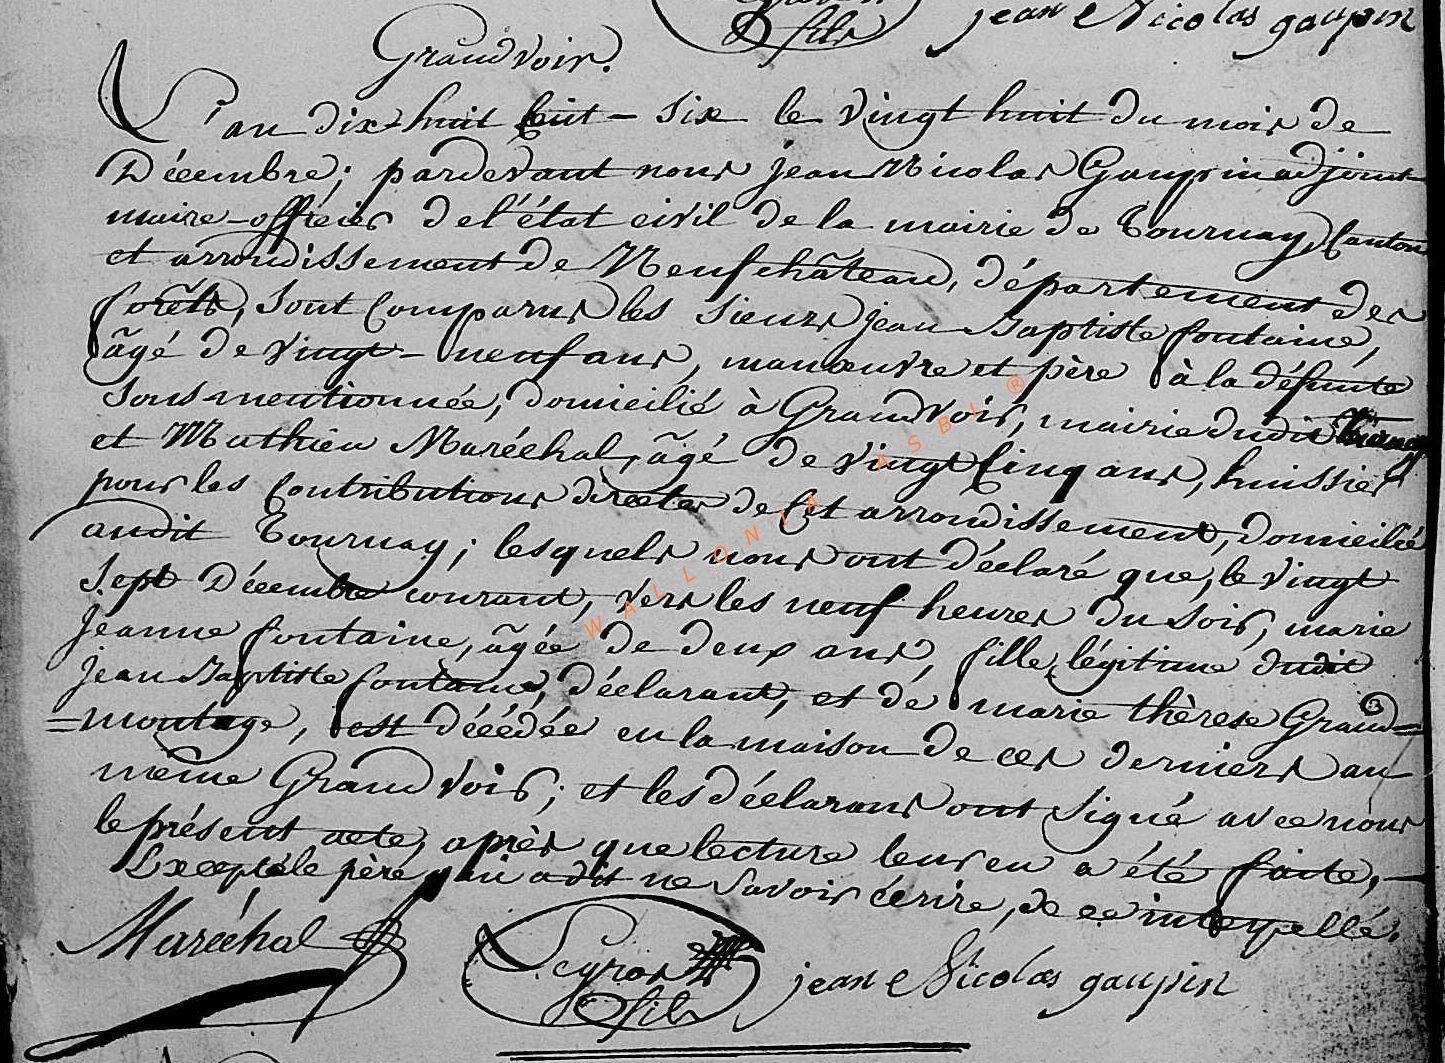 fils jean Nicolas gaupin
Grandvoir.
L'an dix-huit Cent-six le vingt huit du mois de
Décembre; pardevant nous jean Nicolas Gaupin adjoint
maire-officier de l'état civil de la mairie de Tournay, Canton
et arrondissement de Neufchâteau, département des
forêts, sont Comparus les sieurs jean Baptiste fontaine,
âgé de vingt-neuf ans, manœuvre et père à la défunte
sous mentionnée, domicilié à Grandvoir, mairie dudit Tournay
et Mathieu Maréchal, âgé de vingt Cinq ans, huissier
pour les Contributions directes de Cet arrondissement, domicilié
audit Tournay; lesquels nous ont déclaré que, le vingt
sept Décembre courant, vers les neuf heures du soir, marie
jeanne fontaine, âgée de deux ans, fille légitime dudit
jean Baptiste fontaine, déclarant, et de marie thèrese Grand=
=montage, est décédée en la maison de ces derniers au
même Grandvoir; et les déclarans ont signé avec nous
le présent acte, après que lecture leur en a été faite,
Excepté le père qui a dit ne savoir écrire, de ce interpellé.
Maréchal Peyron fils jean Nicolas gaupin
WALLONIA ASBL ®